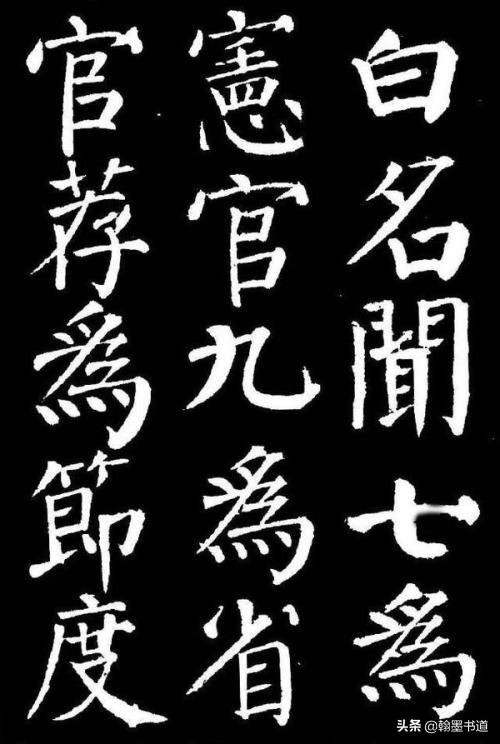 白名聞七爲
憲官九爲省
官荐爲節度
头条 @翰墨书道